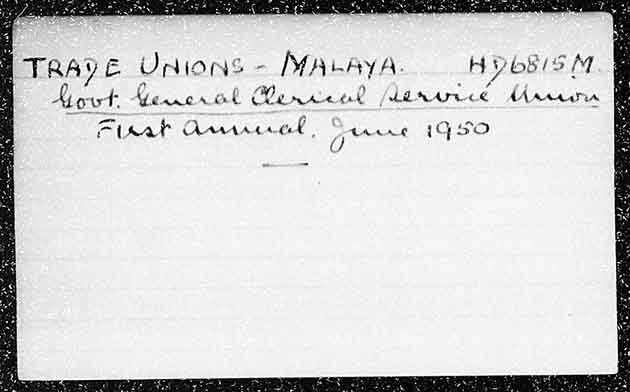 TRADE UNIONS - MALAYA. HD6815M.
Govt. General Clerical Service Union
First Annual. June 1950